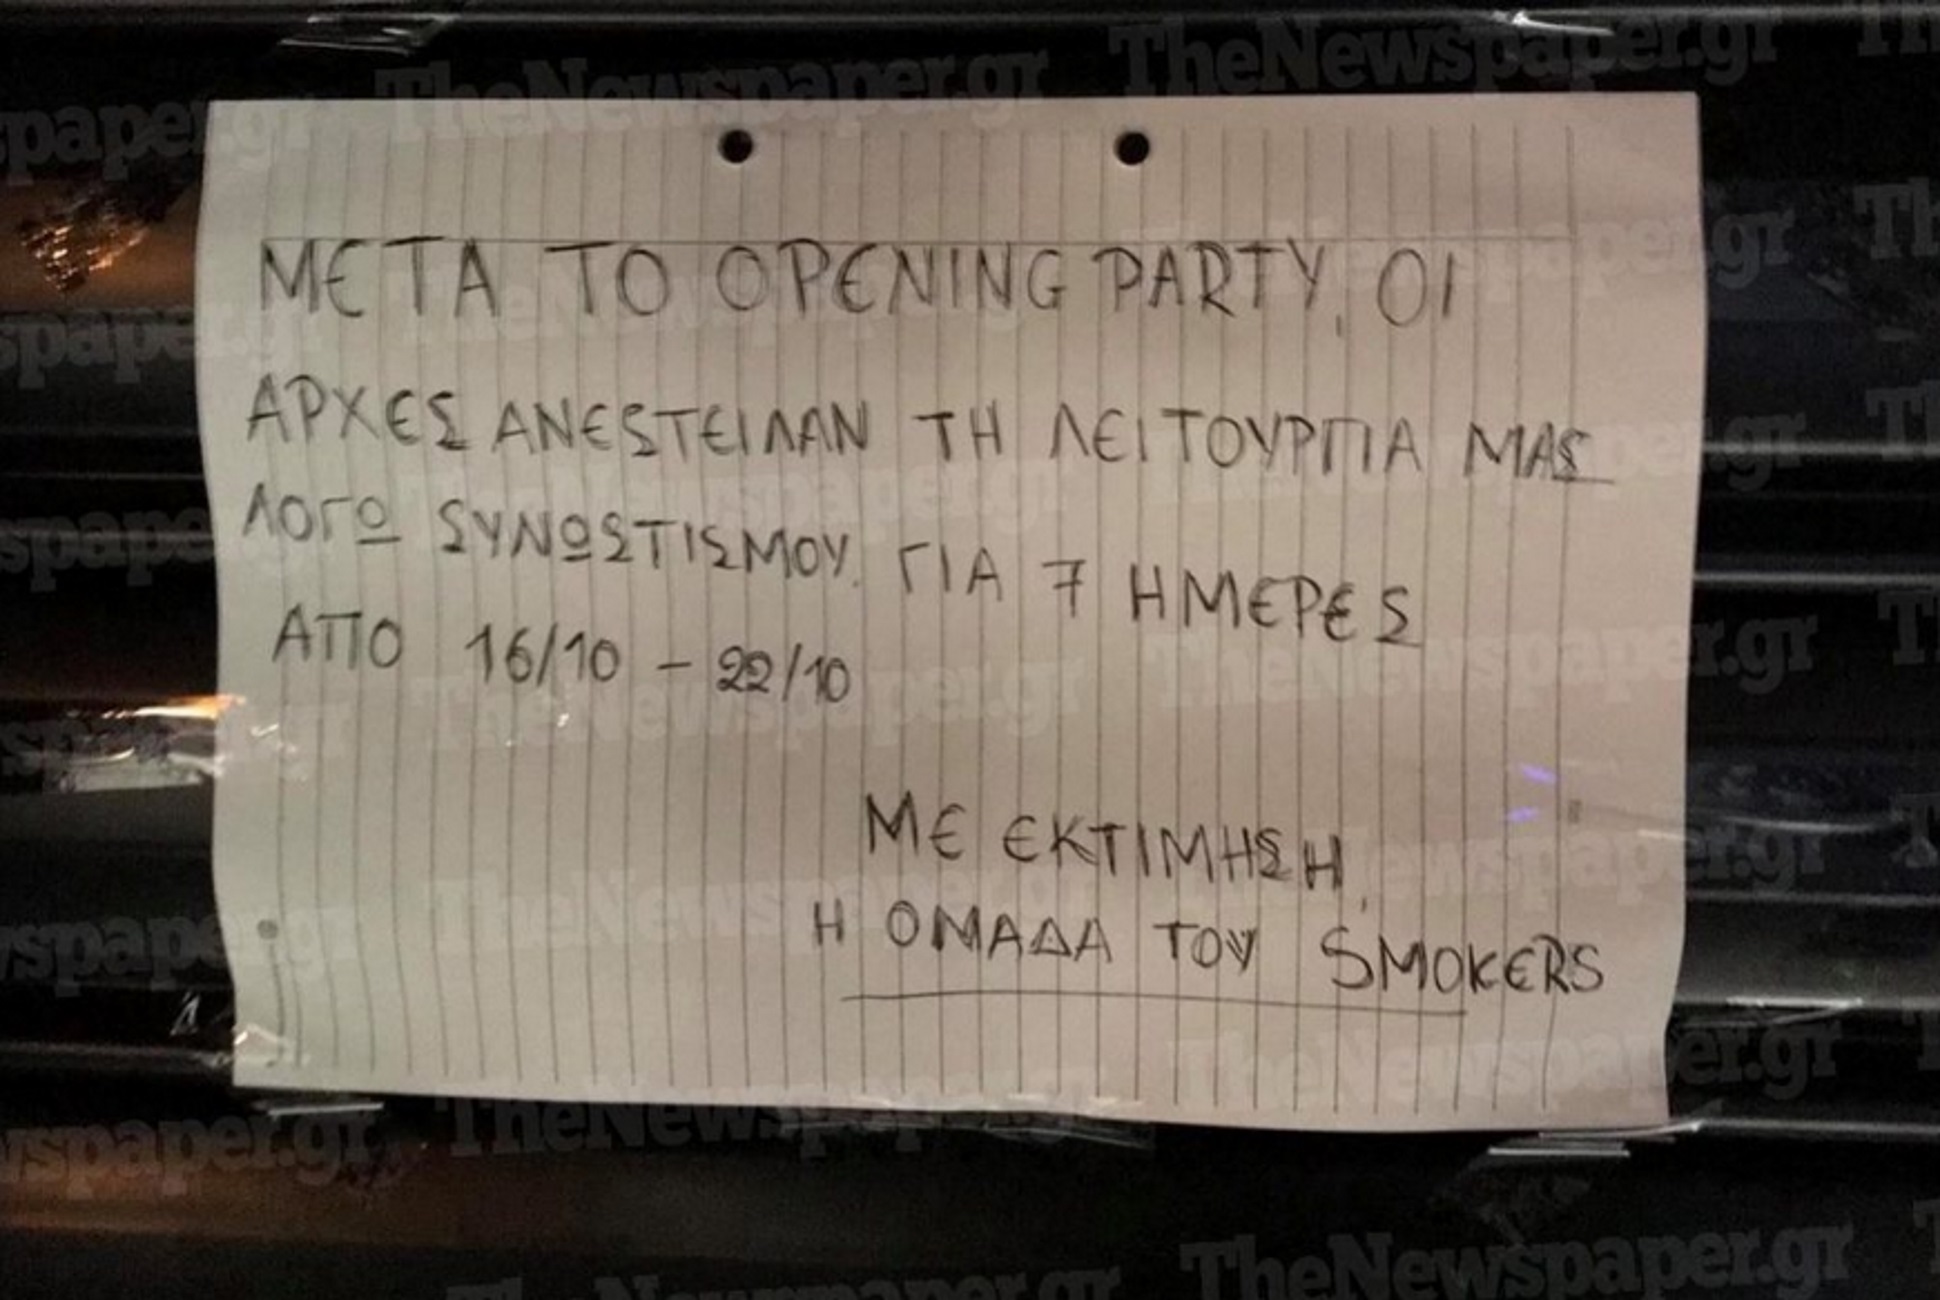 ΜΕΤΑ ΤΟ OPENING PARTY, ΟΙ
ΑΡΧΕΣ ΑΝΕΣΤΕΙΛΑΝ ΤΗ ΛΕΙΤΟΥΡΓΙΑ ΜΑΣ
ΛΟΓΩ ΣΥΝΩΣΤΙΣΜΟΥ. ΓΙΑ 7 ΗΜΕΡΕΣ
ΑΠΟ 16/10 - 22/10
ΜΕ ΕΚΤΙΜΗΣΗ,
Η ΟΜΑΔΑ ΤΟΥ SMOKERS
TheNewspaper.gr